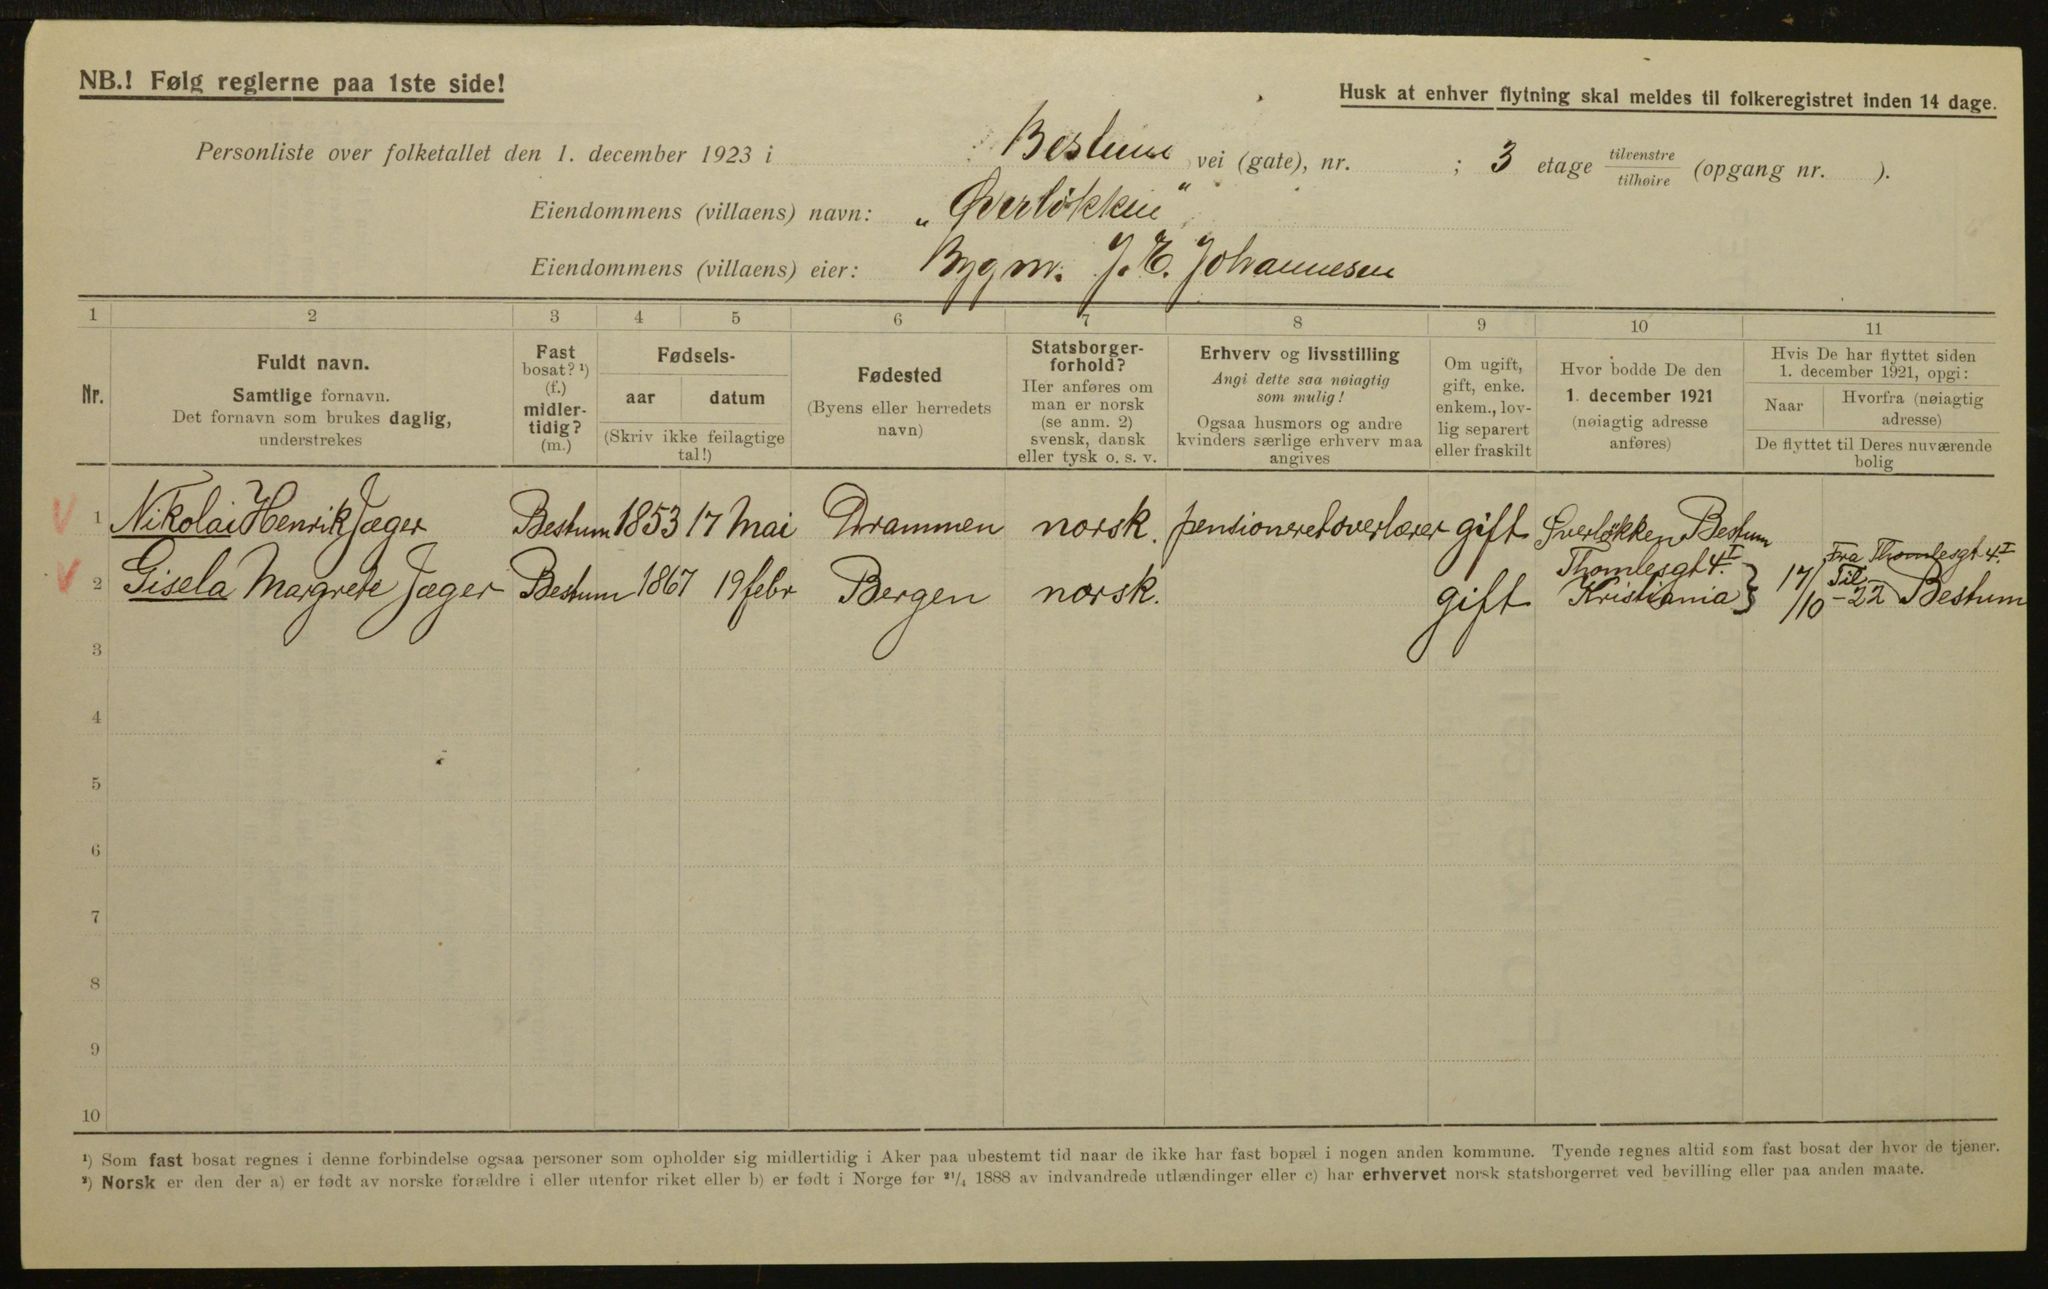 NB.! Følg reglerne paa 1ste side!
Husk at enhver flytning skal meldes til folkeregistret inden 14 dage.
Personliste over folketallet den 1. december 1923 i Bestum vei (gate), nr. ; 3 etage tilvenstre / tilhøire (opgang nr. ).
Eiendommens (villaens) navn: „Øverløkken“
Eiendommens (villaens) eier: Bygm. J. E. Johannesen
1 2 3 4 5 6 7 8 9 10 11
Nr.
Fuldt navn.
Samtlige fornavn.
Det fornavn som brukes daglig,
understrekes
Fast
bosat? ¹)
(f.)
midler-
tidig?
(m.)
Fødsels-
aar datum
(Skriv ikke feilagtige
tal!)
Fødested
(Byens eller herredets
navn)
Statsborger-
forhold?
Her anføres om
man er norsk
(se anm. 2)
svensk, dansk
eller tysk o. s. v.
Erhverv og livsstilling
Angi dette saa nøiagtig
som mulig!
Ogsaa husmors og andre
kvinders særlige erhverv maa
angives
Om ugift,
gift, enke.
enkem., lov-
lig separert
eller fraskilt
Hvor bodde De den
1. december 1921
(nøiagtig adresse
anføres)
Hvis De har flyttet siden
1. december 1921, opgi:
Naar
Hvorfra (nøiagtig
adresse)
De flyttet til Deres nuværende
bolig
1 Nikolai Henrik Jæger Bestum 1853 17 Mai Drammen norsk. pensioneret overlærer gift Øverløkken Bestum
2 Gisela Margrete Jæger Bestum 1867 19 febr Bergen norsk. gift Thomlesgt 4 I. Kristiania } 17/10 - 22 Fra Thomlesgt. 4 I. Til Bestum
3
4
5
6
7
8
9
10
¹) Som fast bosat regnes i denne forbindelse ogsaa personer som opholder sig midlertidig i Aker paa ubestemt tid naar de ikke har fast bopæl i nogen anden kommune. Tyende regnes altid som fast bosat der hvor de tjener.
²) Norsk er den der a) er født av norske forældre i eller utenfor riket eller b) er født i Norge før ²¹/₄ 1888 av indvandrede utlændinger eller c) har erhvervet norsk statsborgerret ved bevilling eller paa anden maate.